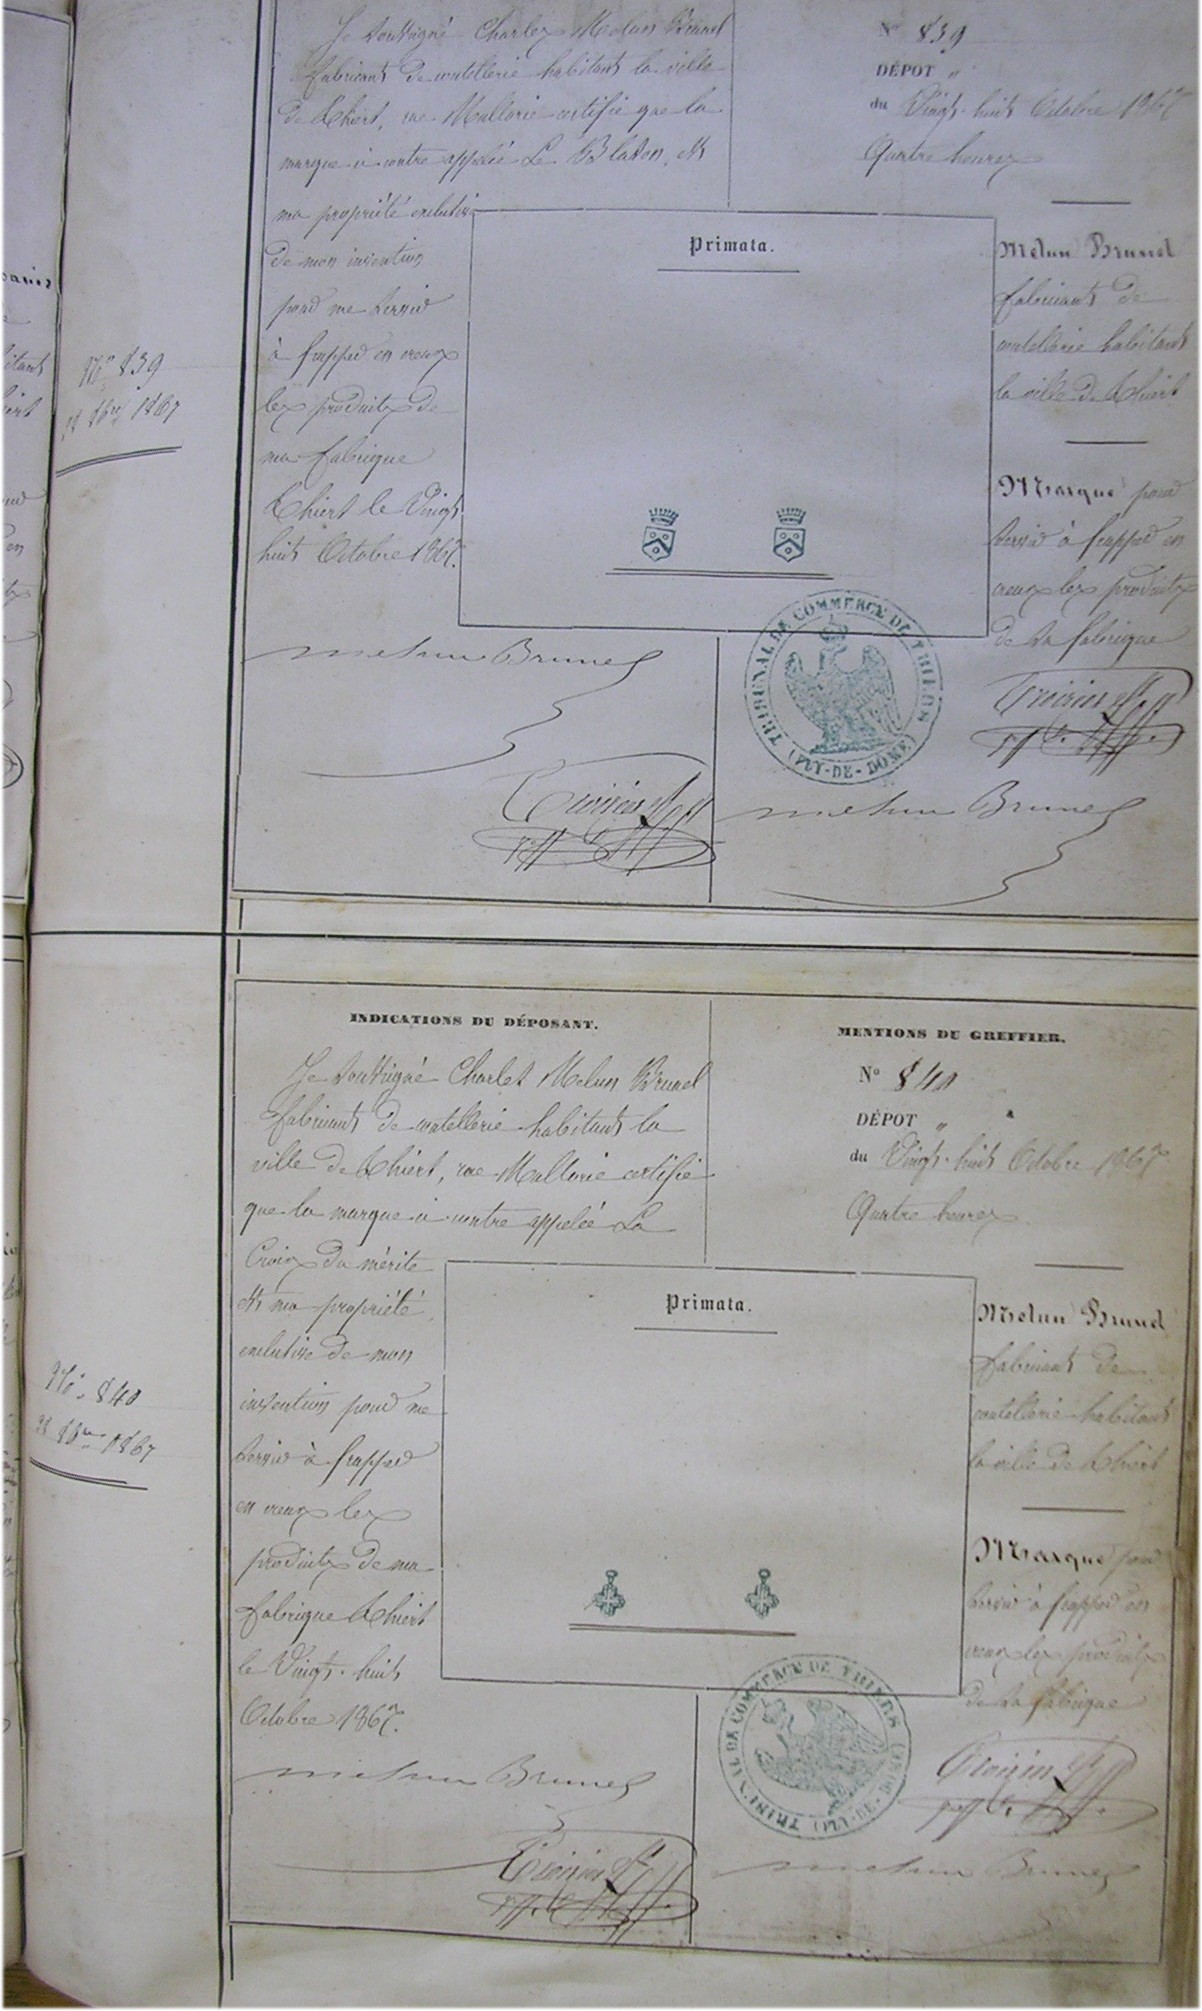 Je soussigné Charles Melun Brunel
fabricant de coutellerie habitant la ville
de Thiers, rue Mallorie certifie que la
marque ci contre appelée Le Blason, est
ma propriété exclusive
de mon invention
pour me servir
à frapper en creux
les produits de
ma fabrique
Thiers le Vingt
huit Octobre 1867.
N° 839
DÉPOT "
du Vingt-huit Octobre 1867
Quatre heures
Primata.
Melun Brunel
fabricant de
coutellerie habitant
la ville de Thiers
Marque pour
servir à frapper en
creux les produits
de sa fabrique
N° 839
28 8bre 1867
TRIBUNAL DE COMMERCE DE THIERS
(PUY-DE-DOME)
Melun Brunel
Melun Brunel
INDICATIONS DU DÉPOSANT.
Je soussigné Charles Melun Brunel
fabricant de coutellerie habitant la
ville de Thiers, rue Mallorie certifie
que la marque ci contre appelée La
Croix du mérite
est ma propriété
exclusive de mon
invention pour me
servir à frapper
en creux les
produits de ma
fabrique Thiers
le Vingt-huit
Octobre 1867.
MENTIONS DU GREFFIER.
N° 840
DÉPOT "
du Vingt-huit Octobre 1867
Quatre heures
Primata.
Melun Brunel
fabricant de
coutellerie habitant
la ville de Thiers
Marque pour
servir à frapper en
creux les produits
de sa fabrique
N° 840
28 8bre 1867
TRIBUNAL DE COMMERCE DE THIERS
(PUY-DE-DOME)
Melun Brunel
Melun Brunel